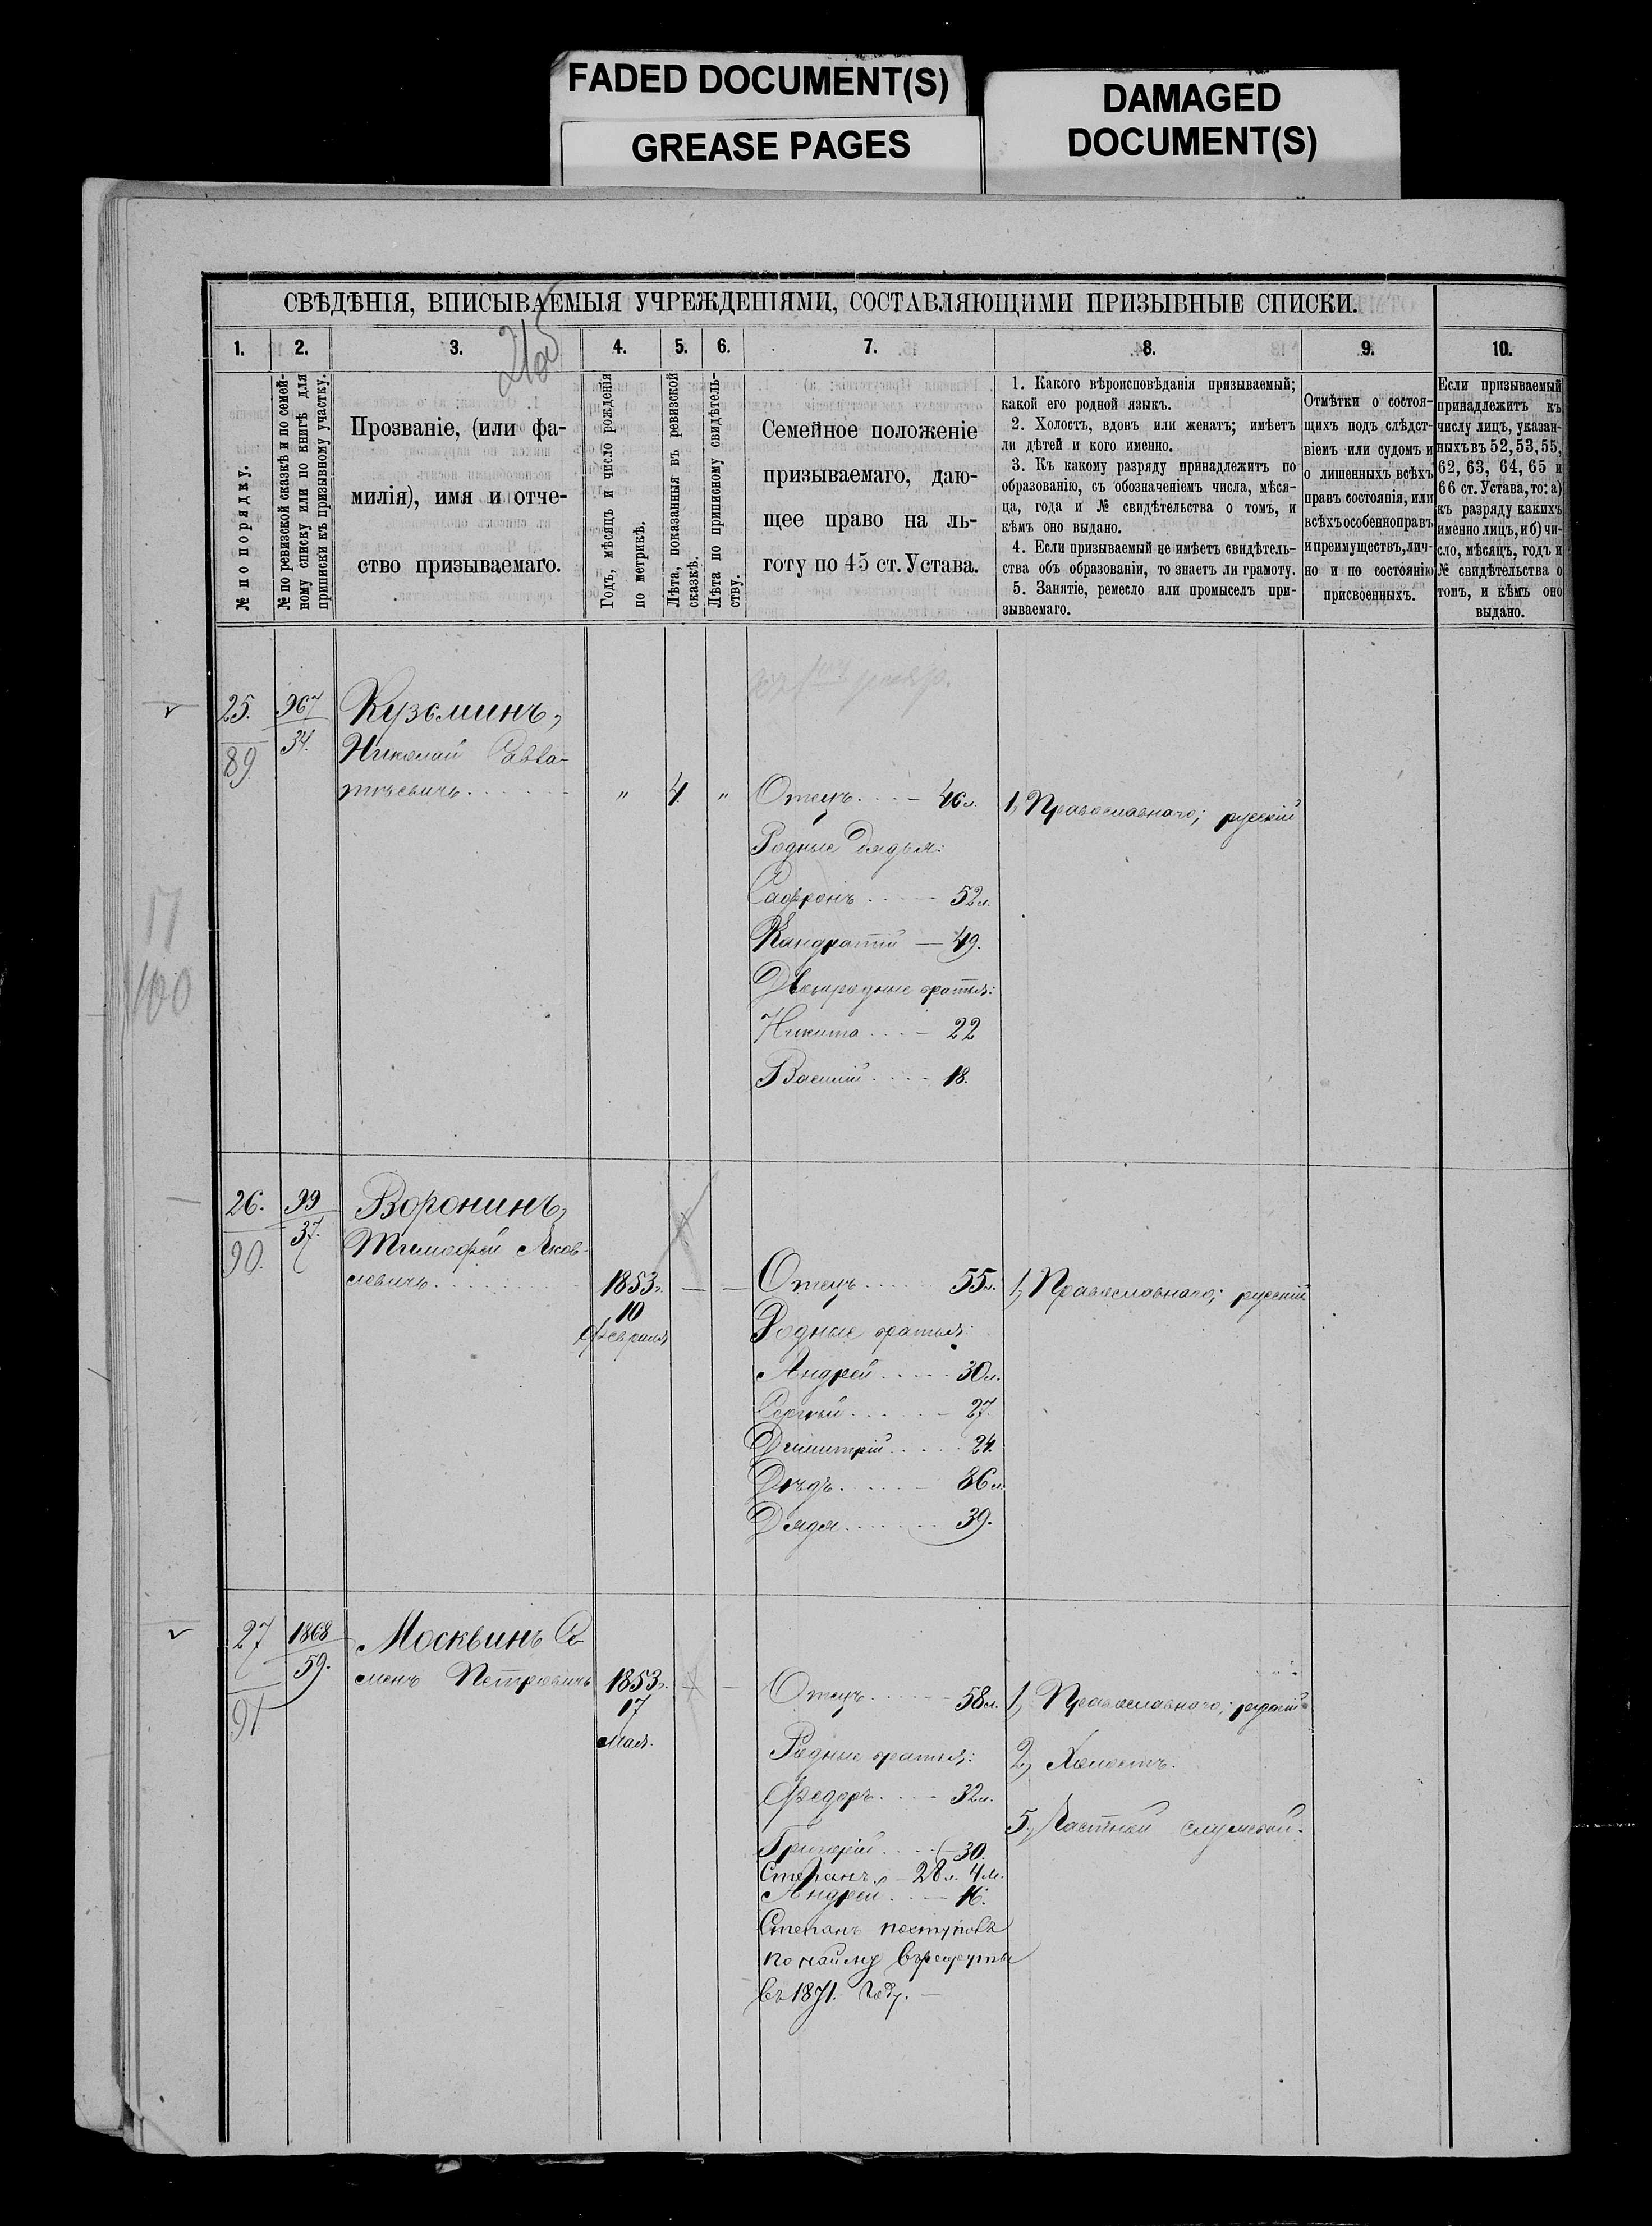 FADED DOCUMENT(S)
GREASE PAGES
DAMAGED
DOCUMENT(S)
СВѢДѢНІЯ, ВПИСЫВАЕМЫЯ УЧРЕЖДЕНІЯМИ, СОСТАВЛЯЮЩИМИ ПРИЗЫВНЫЕ СПИСКИ.
1.
2.
3.
4.
5.
6.
7.
8.
9.
10.
№ по порядку.
№ по ревизской сказкѣ и по семей-
ному списку или по книгѣ для
приписки къ призывному участку.
Прозваніе, (или фа-
милія), имя и отче-
ство призываемаго.
Годъ, мѣсяцъ и число рожденія
по метрикѣ.
Лѣта, показанныя въ ревизской
сказкѣ.
Лѣта по приписному свидѣтель-
ству.
Семейное положеніе
призываемаго, даю-
щее право на ль-
готу по 45 ст. Устава.
1. Какого вѣроисповѣданія призываемый;
какой его родной языкъ.
2. Холостъ, вдовъ или женатъ; имѣетъ
ли дѣтей и кого именно.
3. Къ какому разряду принадлежитъ по
образованію, съ обозначеніемъ числа, мѣся-
ца, года и № свидѣтельства о томъ, и
кѣмъ оно выдано.
4. Если призываемый не имѣетъ свидѣтель-
ства объ образованіи, то знаетъ ли грамоту.
5. Занятіе, ремесло или промыселъ при-
зываемаго.
Отмѣтки о состоя-
щихъ подъ слѣдст-
віемъ или судомъ и
о лишенныхъ всѣхъ
правъ состоянія, или
всѣхъ особенно правъ
и преимуществъ, лич-
но и по состоянію
присвоенныхъ.
Если призываемый
принадлежитъ къ
числу лицъ, указан-
ныхъ въ 52, 53, 55,
62, 63, 64, 65 и
66 ст. Устава, то: а)
къ разряду какихъ
именно лицъ, и б) чи-
сло, мѣсяцъ, годъ и
№ свидѣтельства о
томъ, и кѣмъ оно
выдано.
25.
89.
967
34.
Кузьминъ,
Николай Савва-
тѣевичъ
"
4
"
Отецъ 46 л.
Родные дядья:
Сафронъ 52 л.
Кандратій 49.
Двоюродные братья:
Никита 22
Василій 18.
1, Православнаго; русскій
17
100
26.
90.
99
37.
Воронинъ,
Тимофей Яков-
левичъ
1853 г.
10
февраля
Отецъ 55 л.
Родные братья:
Андрей 30 л.
Сергѣй 27.
Димитрій 24.
Дѣдъ 86 л.
Дядя 39.
1, Православнаго; русскій
27
91
1868
59.
Москвинъ Се
менъ Петровичъ
1853 г.
17
мая.
Отецъ 58 л.
Родные братья:
Федоръ 32 л.
Григорій 30.
Степанъ 28 л. 4 м.
Андрей 16.
Степанъ поступилъ
по найму въ рекруты
въ 1871. году.
1, Православнаго; русскій
2, Холостъ.
5,